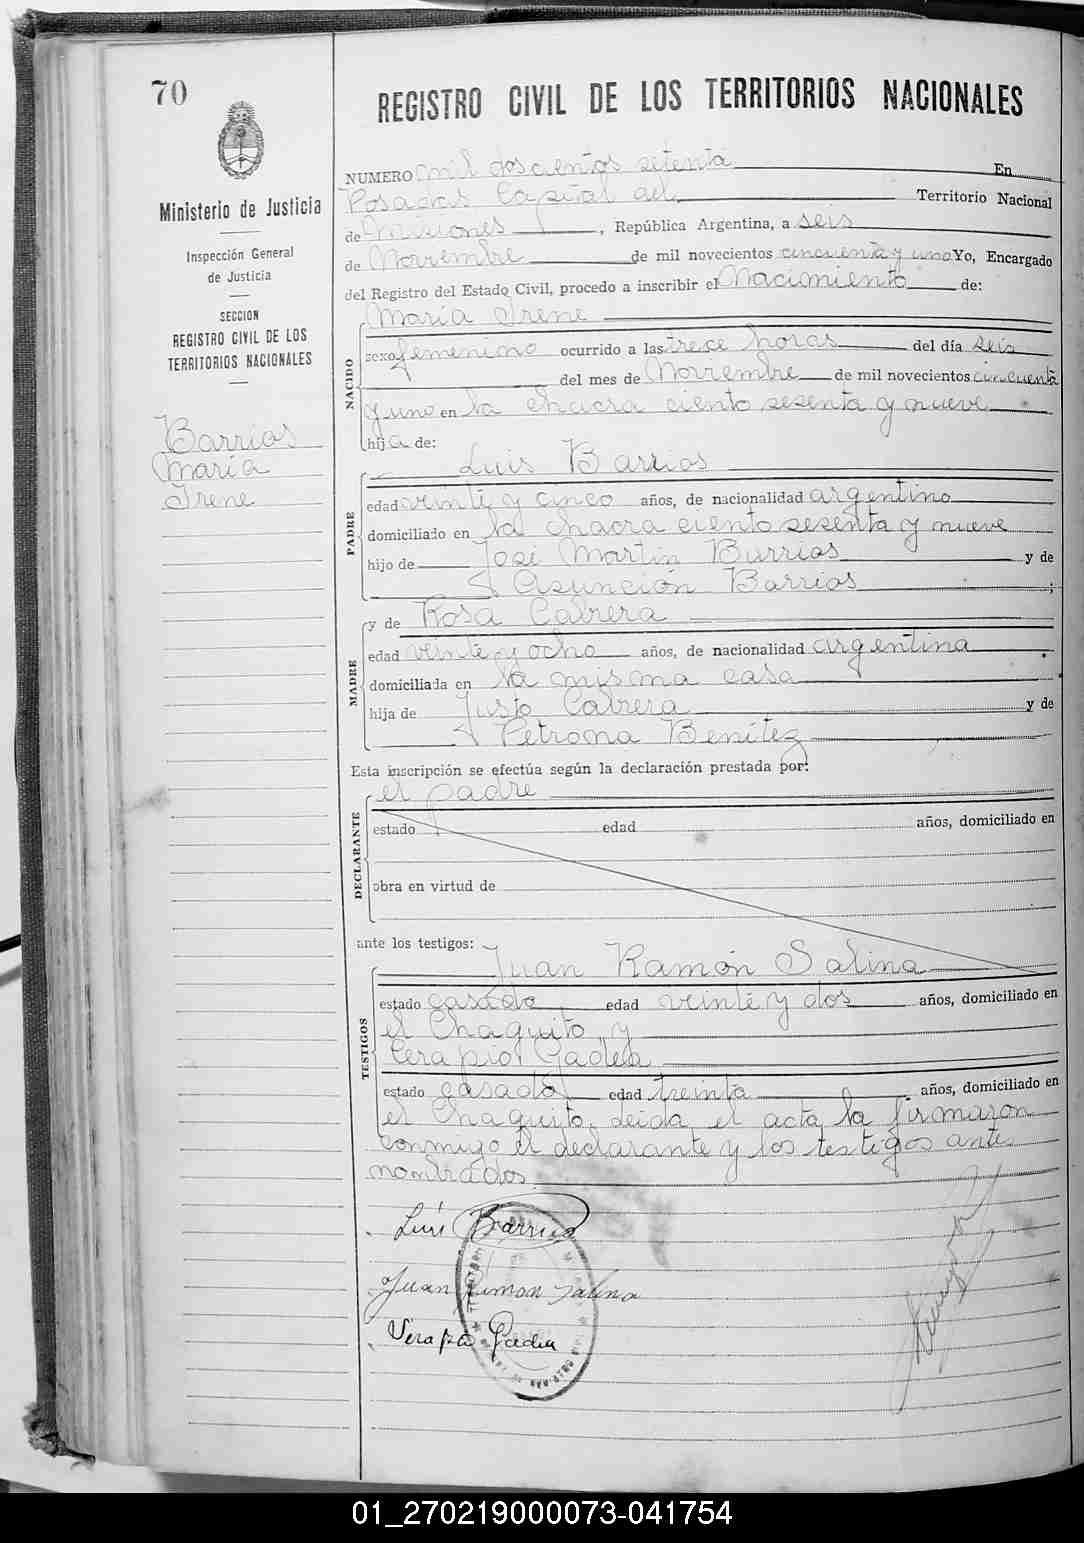 70
REGISTRO CIVIL DE LOS TERRITORIOS NACIONALES
Ministerio de Justicia
Inspección General
de Justicia
SECCION
REGISTRO CIVIL DE LOS
TERRITORIOS NACIONALES
Barrios
María
Irene
NUMERO mil doscientos setenta En
Posadas Capital del Territorio Nacional
de Misiones, República Argentina, a seis
de Noviembre de mil novecientos cincuenta y uno Yo, Encargado
del Registro del Estado Civil, procedo a inscribir el Nacimiento de:
NACIDO
María Irene
sexo femenino ocurrido a las trece horas del día seis
del mes de Noviembre de mil novecientos cincuenta
y uno en la chacra ciento sesenta y nueve
hija de:
PADRE
Luis Barrios
edad veinte y cinco años, de nacionalidad argentino
domiciliado en la chacra ciento sesenta y nueve
hijo de José Martín Barrios y de
Asunción Barrios;
MADRE
y de Rosa Cabrera
edad veinte y ocho años, de nacionalidad argentina
domiciliada en la misma casa
hija de Justo Cabrera y de
Petrona Benítez
Esta inscripción se efectúa según la declaración prestada por:
DECLARANTE
el padre
estado edad años, domiciliado en
obra en virtud de
ante los testigos:
TESTIGOS
Juan Ramón Salina
estado casado edad veinte y dos años, domiciliado en
el Chaquito y
Gadea
estado casado edad treinta años, domiciliado en
el Chaquito. Leida el acta la firmaron
conmigo el declarante y los testigos ante
nombrados.
Luis Barrios
Juan Ramon Salina
Serapio Gadea
01_270219000073-041754